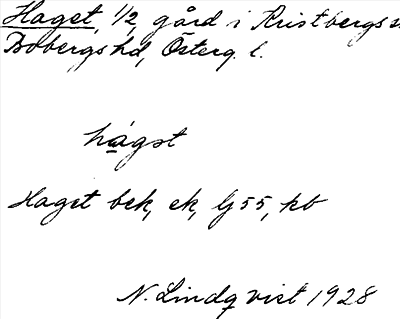 Haget, 1/2 gård i Kristbergs s.
Bobergs hd, Österg. l.
hågst
Haget bek, ek, lj 55, kb
N. Lindqvist 1928